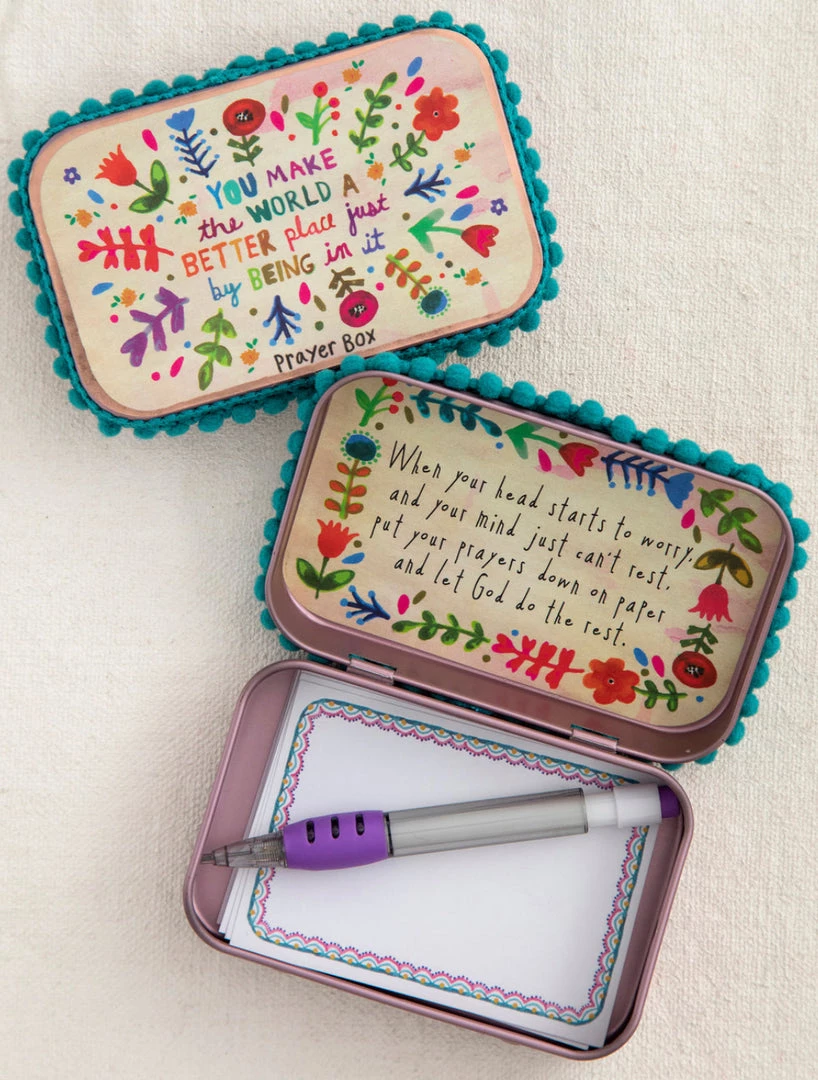 YOU MAKE
the WORLD A
BETTER place just
by BEING in it
Prayer Box
When your head starts to worry,
and your mind just can't rest,
put your prayers down on paper
and let God do the rest.